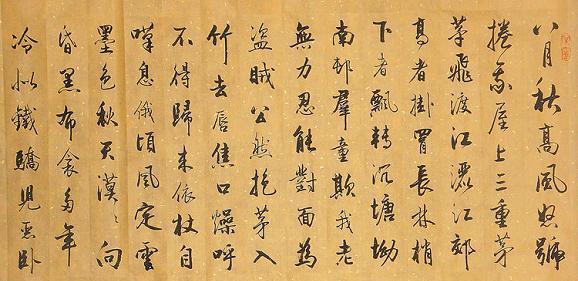 八月秋高風怒號
捲我屋上三重茅
茅飛渡江灑江郊
高者掛罥長林梢
下者飄轉沉塘坳
南邨羣童欺我老
無力忍能對面為
盜賊公然抱茅入
竹去唇焦口燥呼
不得歸來依杖自
嘆息俄頃風定雲
墨色秋天漠々向
昏黑布衾多年
冷似鐵驕兒惡臥